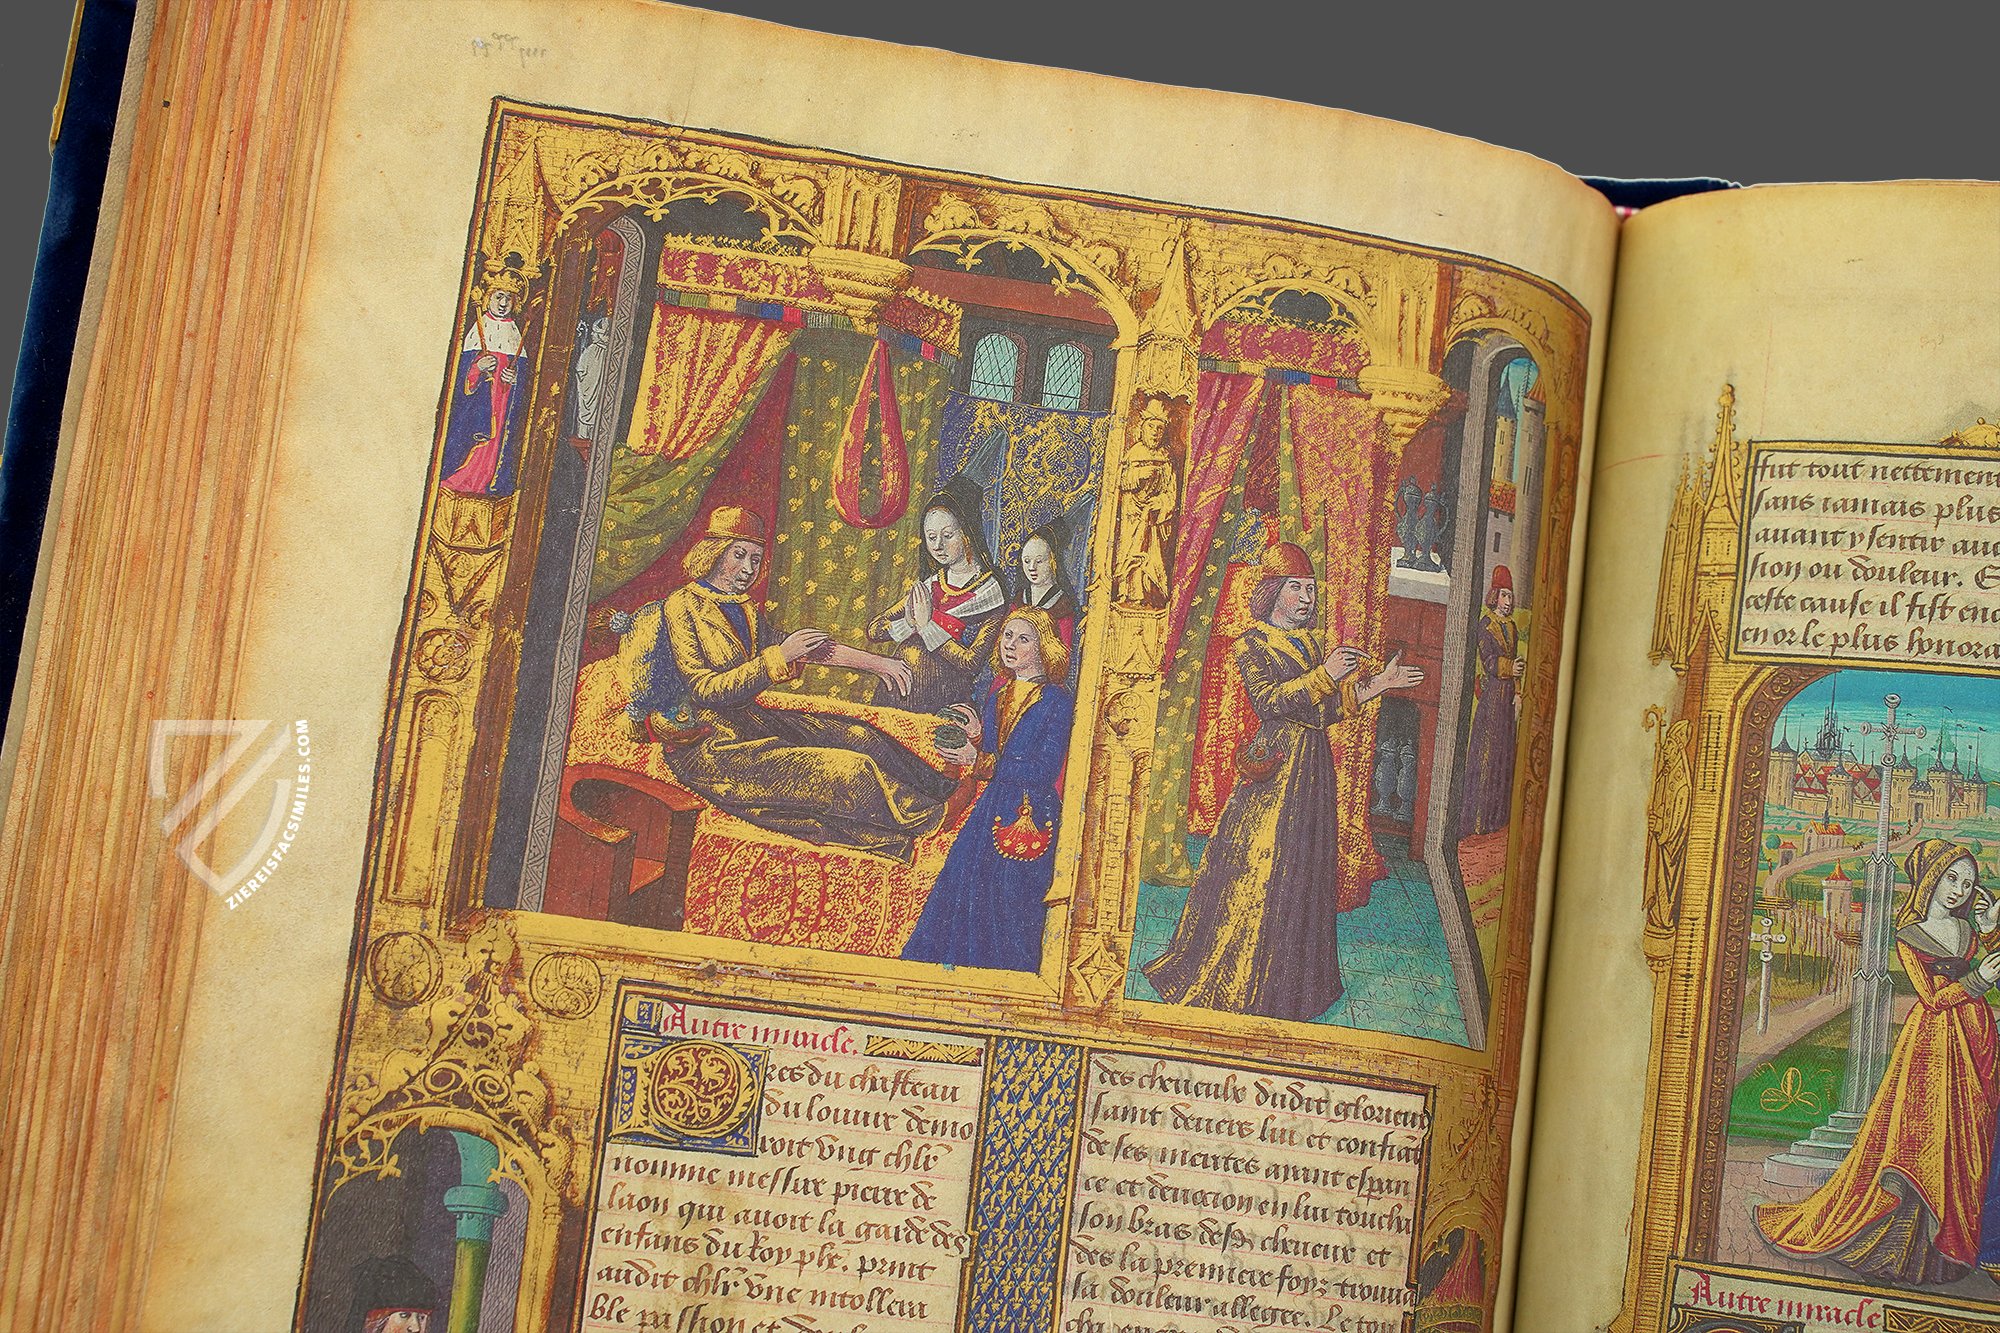 ZIEREISFACSIMILES.COM
Autre miracle.
Pres du chasteau
du louure demo
roit vng chlr
nomme messire pierre de
laon qui auoit la garde des
enfans du Roy phe. print
audit chlr vne intollera
ble passion et
des cheueulx dudit glorieux
saint deuers lui et confiāt
de ses merites ayant espan
ce et deuocion en lui toucha
son bras desd cheueux et
des la premiere foyz trouua
sa douleur allegee. Le
fut tout nettement
sans iamais plus
auant y sentir auc
sion ou douleur. E
ceste cause il fist enc
en or le plus honora
Autre miracle